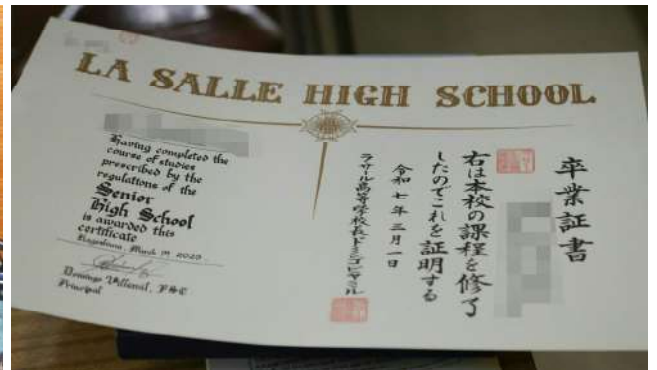 LA SALLE HIGH SCHOOL
Having completed the
course of studies
prescribed by the
regulations of the
Senior
High School
is awarded this
certificate
Kagoshima, March 1st 2025
Domingo Villamil, FSC
Principal
卒業証書
右は本校の課程を修了
したのでこれを証明する
令和七年三月一日
ラ・サール高等学校長ドミンゴ・ビヤミル